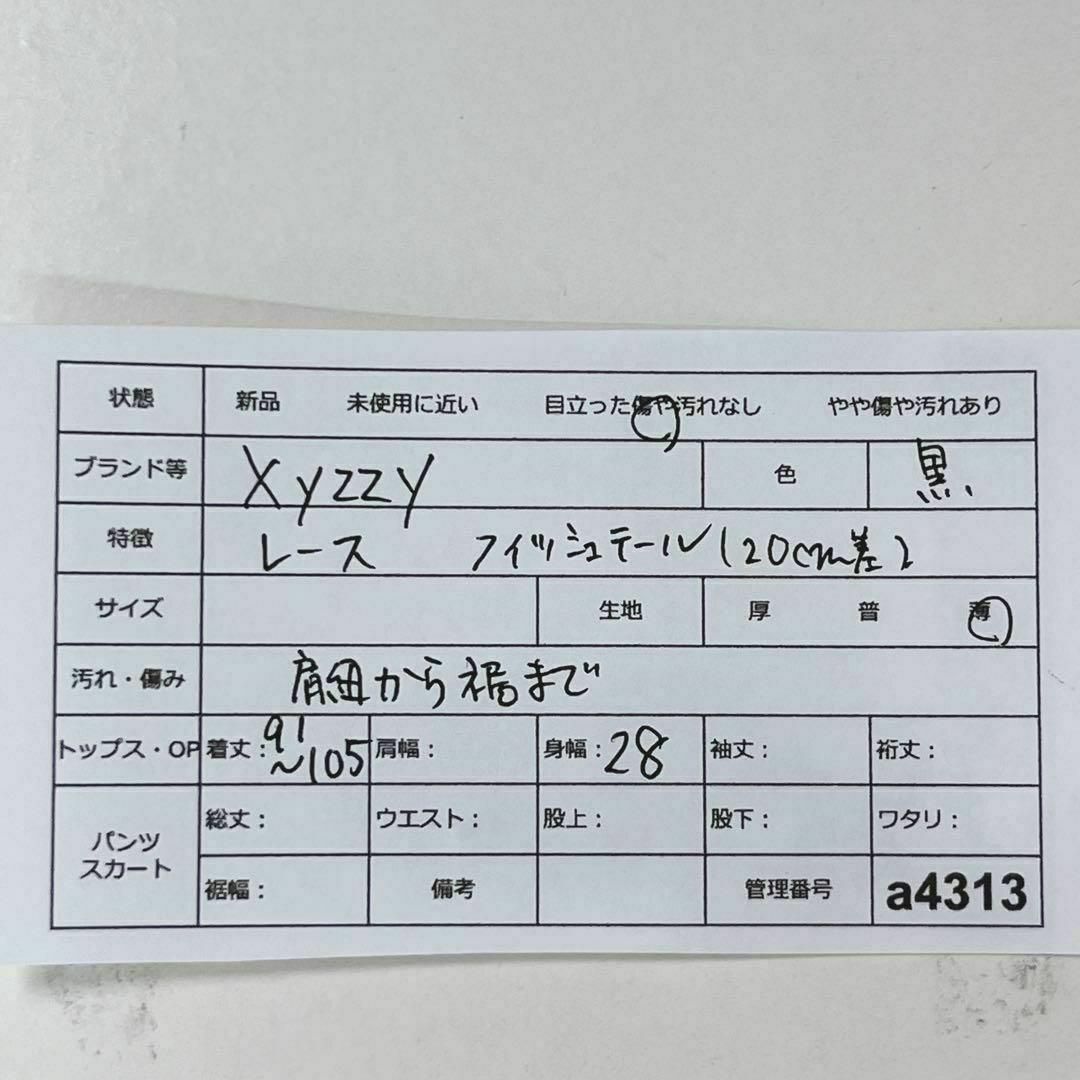 状態 新品 未使用に近い 目立った傷や汚れなし やや傷や汚れあり
ブランド等 Xyzzy 色 黒
特徴 レース フィッシュテール(20cm差)
サイズ 生地 厚 普 薄
汚れ・傷み 肩紐から裾まで
トップス・OP 着丈: 91 ~105 肩幅: 身幅: 28 袖丈: 裄丈:
パンツ スカート 総丈: ウエスト: 股上: 股下: ワタリ:
裾幅: 備考 管理番号 a4313